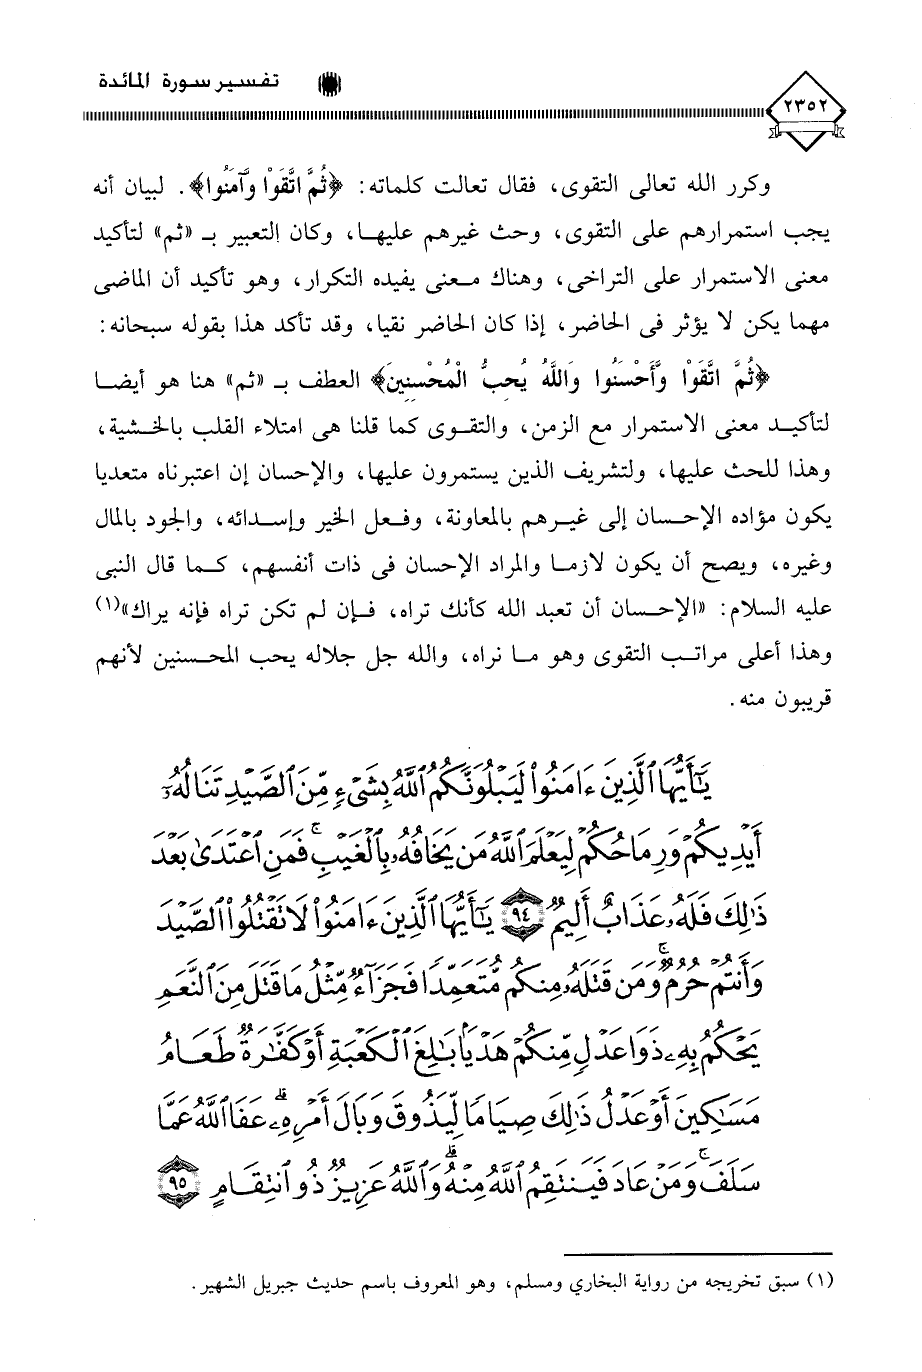 تفسير سورة المائدة
٢٣٥٢
وكرر الله تعالى التقوى، فقال تعالت كلماته: ﴿ثُمَّ اتَّقَوْا وَّآمَنُوا﴾. لبيان أنه
يجب استمرارهم على التقوى، وحث غيرهم عليها، وكان التعبير بـ «ثم» لتأكيد
معنى الاستمرار على التراخى، وهناك معنى يفيده التكرار، وهو تأكيد أن الماضى
مهما يكن لا يؤثر فى الحاضر، إذا كان الحاضر نقيا، وقد تأكد هذا بقوله سبحانه:
﴿ثُمَّ اتَّقَوْا وَّأَحْسَنُوا وَاللَّهُ يُحِبُّ الْمُحْسِنِينَ﴾ العطف بـ «ثم» هنا هو أيضا
لتأكيد معنى الاستمرار مع الزمن، والتقوى كما قلنا هى امتلاء القلب بالخشية،
وهذا للحث عليها، ولتشريف الذين يستمرون عليها، والإحسان إن اعتبرناه متعديا
يكون مؤداه الإحسان إلى غيرهم بالمعاونة، وفعل الخير وإسدائه، والجود بالمال
وغيره، ويصح أن يكون لازما والمراد الإحسان فى ذات أنفسهم، كما قال النبى
عليه السلام: «الإحسان أن تعبد الله كأنك تراه، فإن لم تكن تراه فإنه يراك»(١)
وهذا أعلى مراتب التقوى وهو ما نراه، والله جل جلاله يحب المحسنين لأنهم
قريبون منه.
يَٰٓأَيُّهَا ٱلَّذِينَ ءَامَنُوا۟ لَيَبْلُوَنَّكُمُ ٱللَّهُ بِشَىْءٍ مِّنَ ٱلصَّيْدِ تَنَالُهُۥٓ
أَيْدِيكُمْ وَرِمَاحُكُمْ لِيَعْلَمَ ٱللَّهُ مَن يَخَافُهُۥ بِٱلْغَيْبِ ۚ فَمَنِ ٱعْتَدَىٰ بَعْدَ
ذَٰلِكَ فَلَهُۥ عَذَابٌ أَلِيمٌ ٩٤ يَٰٓأَيُّهَا ٱلَّذِينَ ءَامَنُوا۟ لَا تَقْتُلُوا۟ ٱلصَّيْدَ
وَأَنتُمْ حُرُمٌ ۚ وَمَن قَتَلَهُۥ مِنكُم مُّتَعَمِّدًا فَجَزَآءٌ مِّثْلُ مَا قَتَلَ مِنَ ٱلنَّعَمِ
يَحْكُمُ بِهِۦ ذَوَا عَدْلٍ مِّنكُمْ هَدْيًۢا بَٰلِغَ ٱلْكَعْبَةِ أَوْ كَفَّٰرَةٌ طَعَامُ
مَسَٰكِينَ أَوْ عَدْلُ ذَٰلِكَ صِيَامًا لِّيَذُوقَ وَبَالَ أَمْرِهِۦ ۗ عَفَا ٱللَّهُ عَمَّا
سَلَفَ ۚ وَمَنْ عَادَ فَيَنتَقِمُ ٱللَّهُ مِنْهُ ۗ وَٱللَّهُ عَزِيزٌ ذُو ٱنتِقَامٍ ٩٥
(١) سبق تخريجه من رواية البخاري ومسلم، وهو المعروف باسم حديث جبريل الشهير.